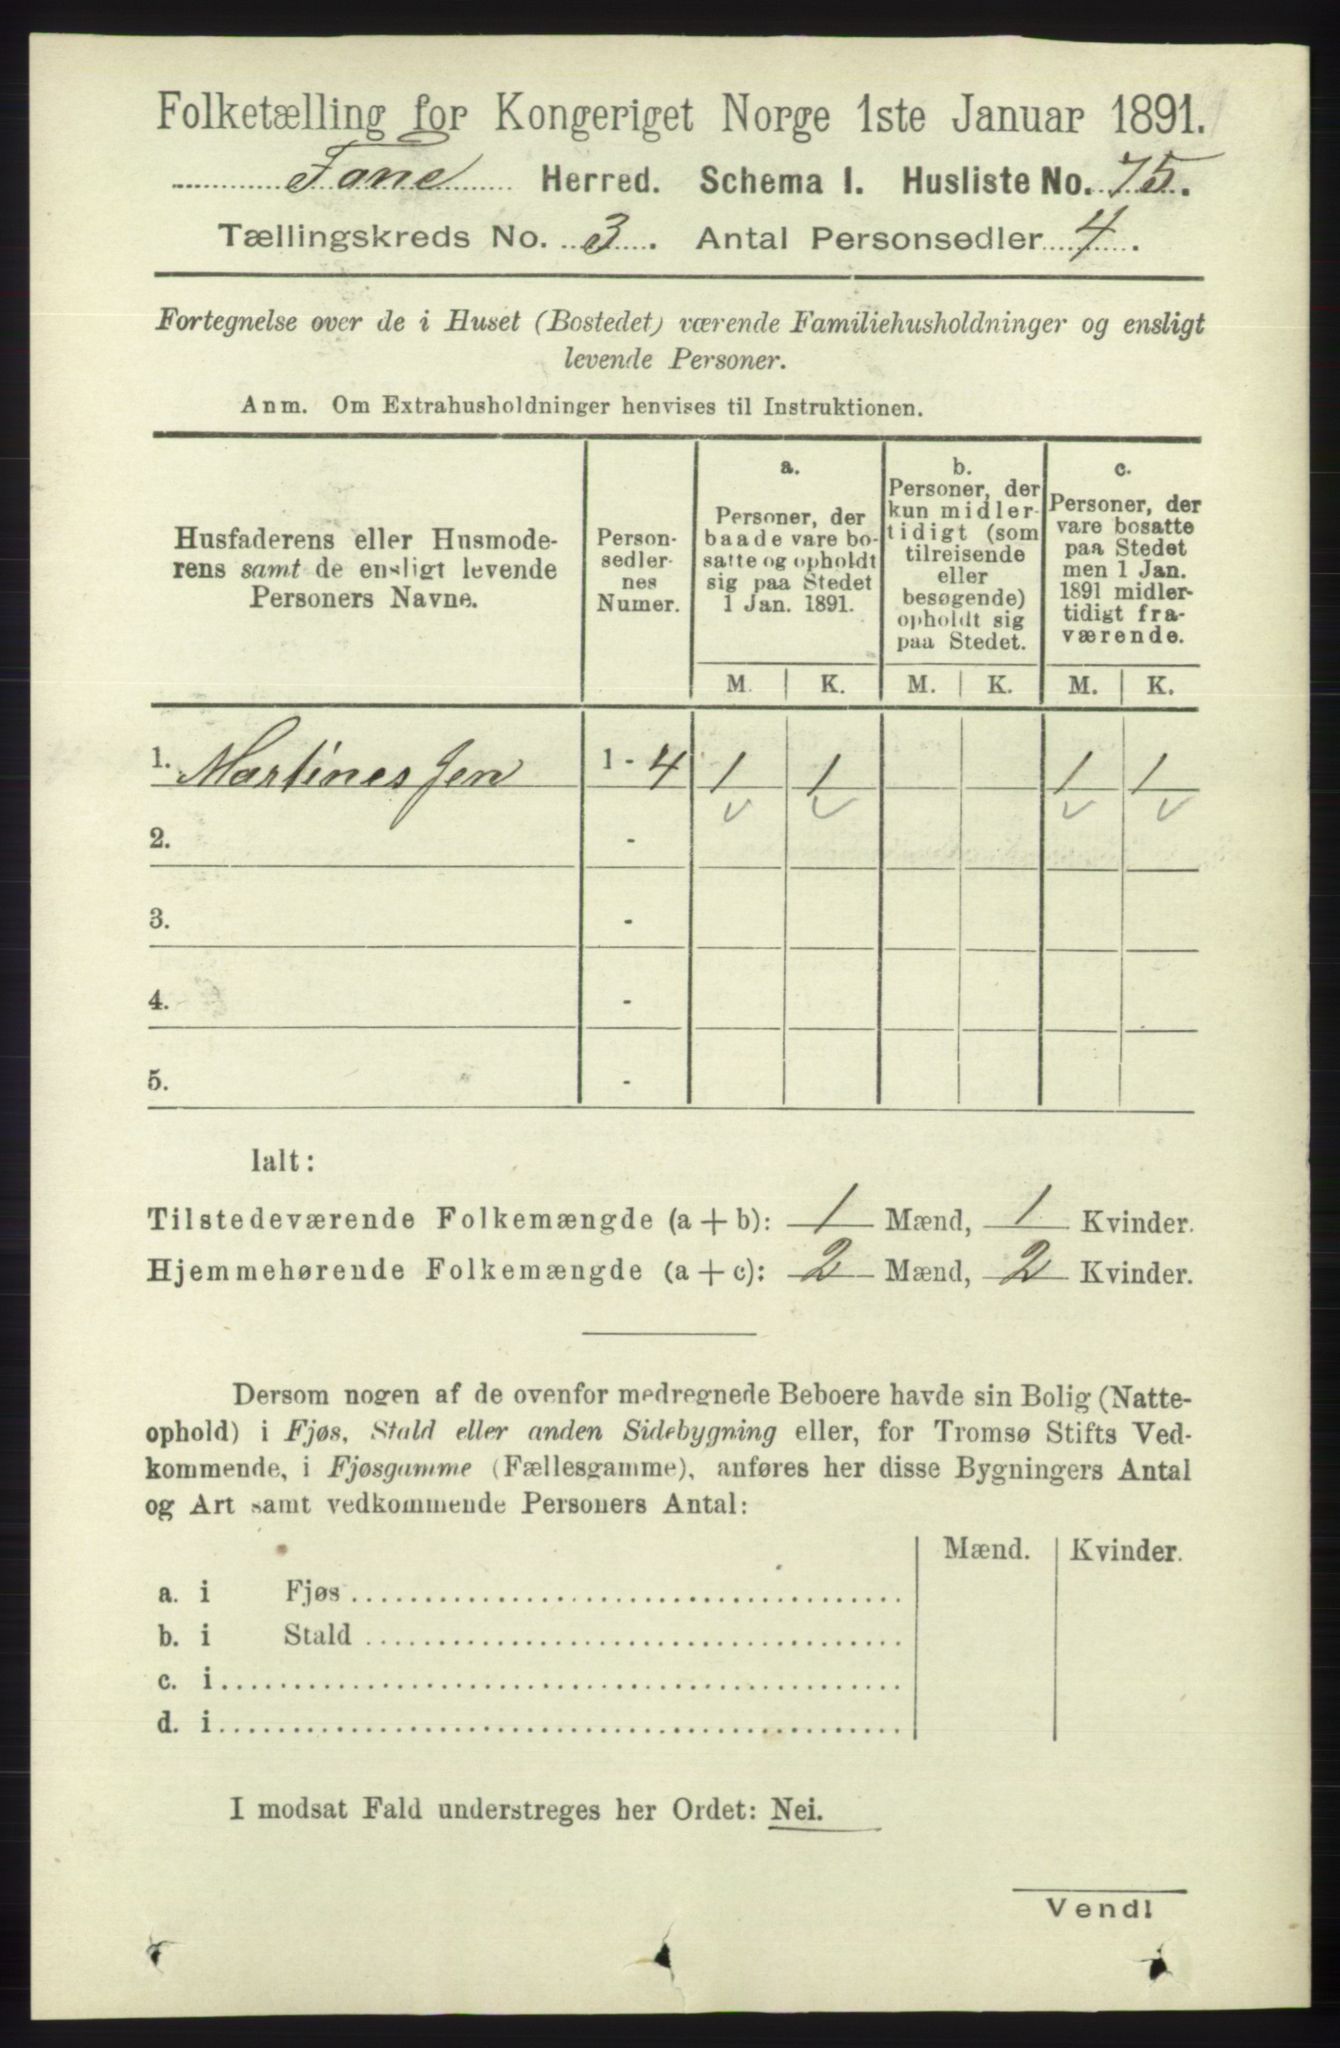 Folketælling for Kongeriget Norge 1ste Januar 1891.
Fane Herred. Schema I. Husliste No. 75.
Tællingskreds No. 3. Antal Personsedler 4.
Fortegnelse over de i Huset (Bostedet) værende Familiehusholdninger og ensligt
levende Personer.
Anm. Om Extrahusholdninger henvises til Instruktionen.
Husfaderens eller Husmode-
rens samt de ensligt levende
Personers Navne.
Person-
sedler-
nes
Numer.
a.
Personer, der
baade vare bo-
satte og opholdt
sig paa Stedet
1 Jan. 1891.
b.
Personer, der
kun midler-
tidigt (som
tilreisende
eller
besøgende)
opholdt sig
paa Stedet.
c.
Personer, der
vare bosatte
paa Stedet
men 1 Jan.
1891 midler-
tidigt fra-
værende.
M. K. M. K. M. K.
1. Martines Jen 1 - 4 1 1 1 1
2. -
3. -
4. -
5. -
Ialt:
Tilstedeværende Folkemængde (a + b): 1 Mænd, 1 Kvinder.
Hjemmehørende Folkemængde (a + c): 2 Mænd, 2 Kvinder.
Dersom nogen af de ovenfor medregnede Beboere havde sin Bolig (Natte-
ophold) i Fjøs, Stald eller anden Sidebygning eller, for Tromsø Stifts Ved-
kommende, i Fjøsgamme (Fællesgamme), anføres her disse Bygningers Antal
og Art samt vedkommende Personers Antal:
Mænd. Kvinder.
a. i Fjøs
b. i Stald
c. i
d. i
I modsat Fald understreges her Ordet: Nei.
Vendl